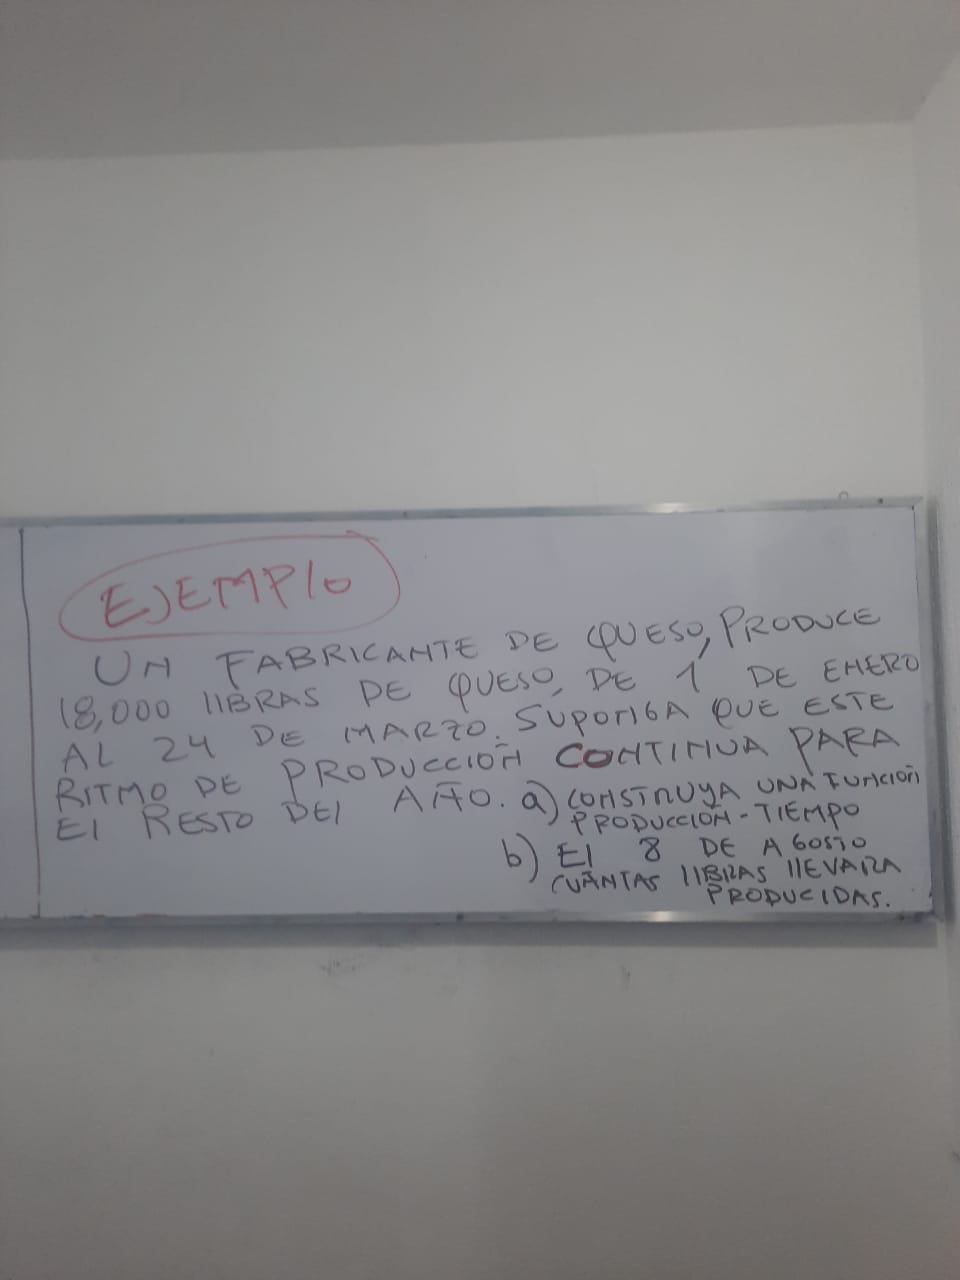 EJEMPlO
UN FABRICANTE DE QUESO, PRODUCE
18,000 lIBRAS DE QUESO, DE 1 DE ENERO
AL 24 DE MARZO. SUPONGA QUE ESTE
RITMO DE PRODUCCIÓN CONTINUA PARA
El RESTO DEl AÑO. a) CONSTRUYA UNA FUNCIÓN
PRODUCCIÓN - TIEMPO
b) El 8 DE AGOSTO
CUÁNTAS lIBRAS llEVARA
PRODUCIDAS.